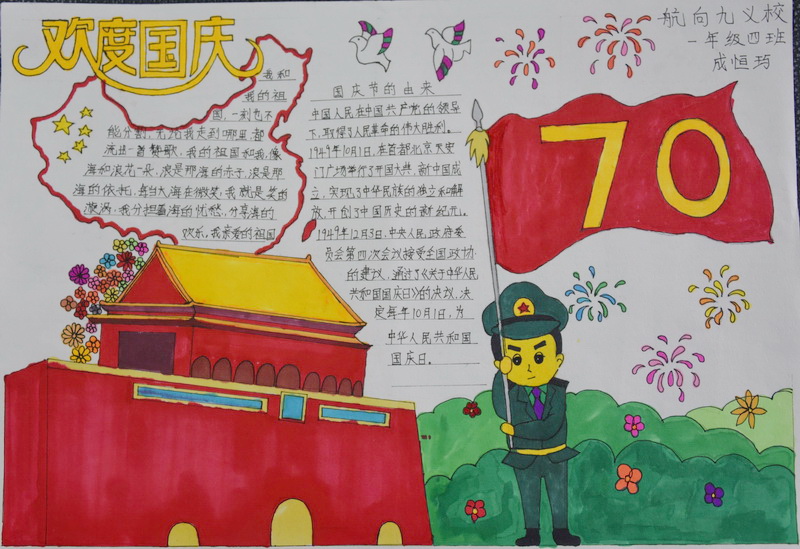 欢度国庆
我和
我的祖
国，一刻也不
能分割，无论我走到哪里，都
流出一首赞歌，我的祖国和我，像
海和浪花一朵，浪是那海的赤子，浪是那
海的依托，每当大海在微笑，我就是笑的
漩涡，我分担着海的忧愁，分享海的
欢乐，我亲爱的祖国
国庆节的由来
中国人民在中国共产党的领导
下，取得了人民革命的伟大胜利。
1949年10月1日，在首都北京天安
门广场举行了开国大典，新中国成
立，实现了中华民族的独立和解
放，开创了中国历史的新纪元。
1949年12月3日，中央人民政府委
员会第四次会议接受全国政协
的建议，通过了《关于中华人民
共和国国庆日》的决议，决
定每年10月1日，为
中华人民共和国
国庆日。
航向九义校
一年级四班
成恒玙
70